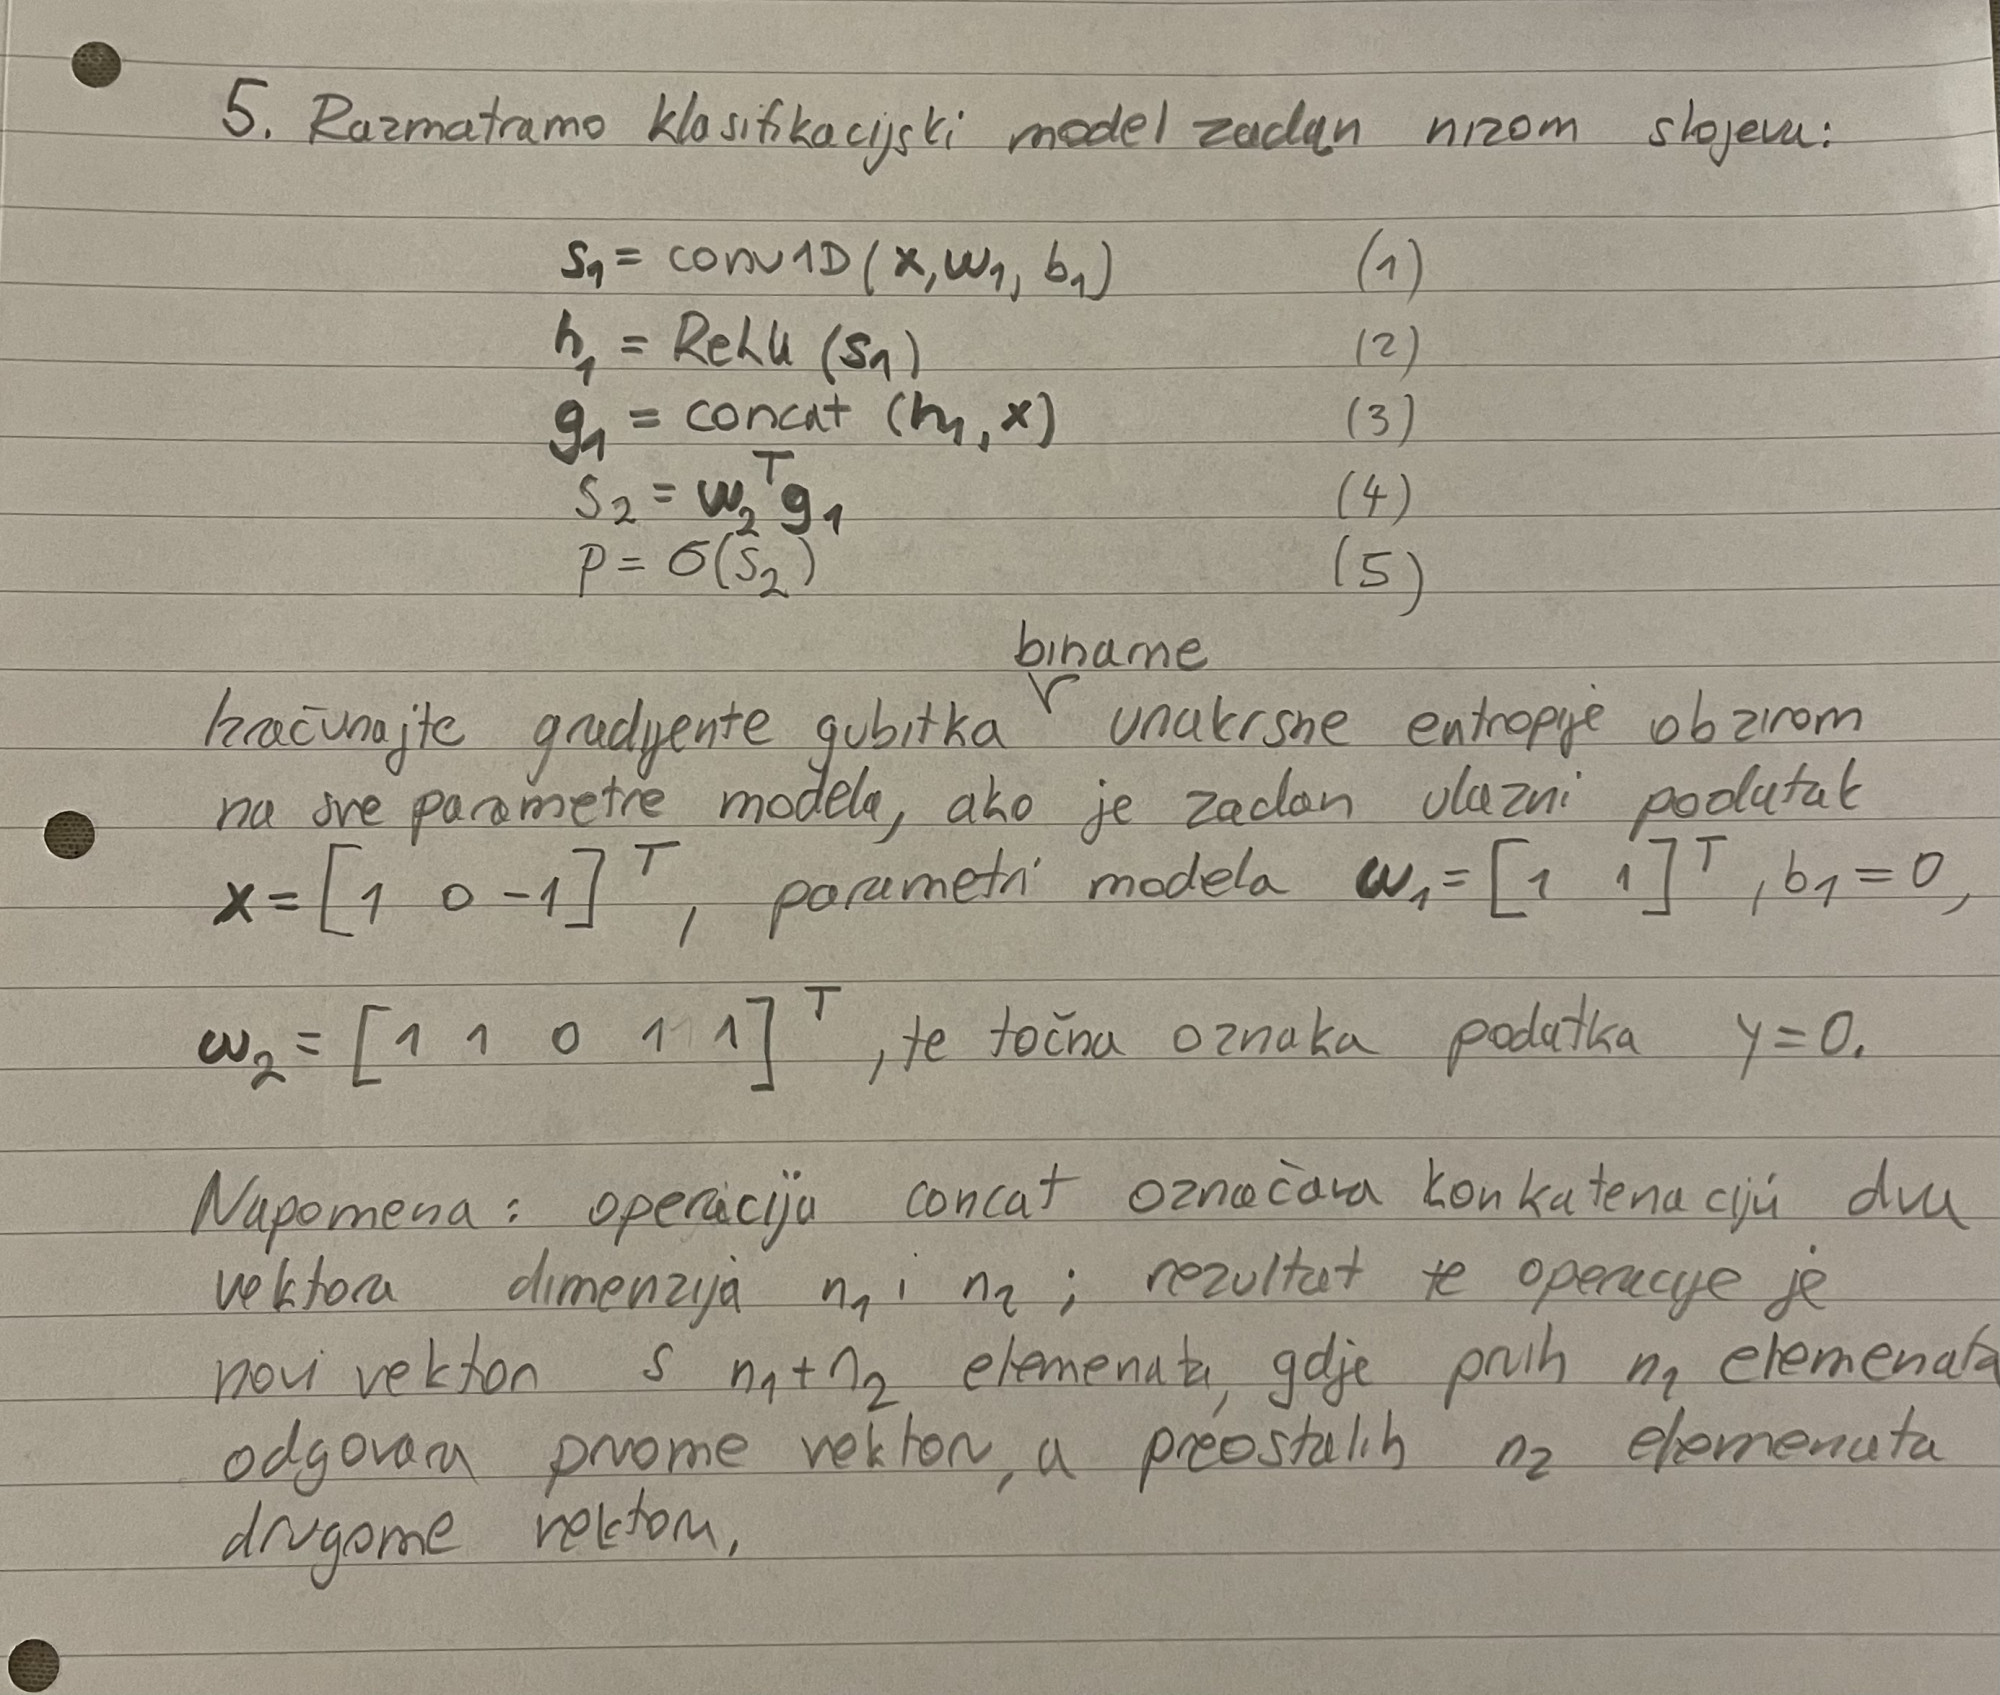 5. Razmatramo klasifikacijski model zadan nizom slojeva:
s₁ = conv1D(x, w₁, b₁) (1)
h₁ = ReLU(s₁) (2)
g₁ = concat(h₁, x) (3)
s₂ = w₂ᵀg₁ (4)
p = σ(s₂) (5)
binarne
Izračunajte gradijente gubitka unakrsne entropije obzirom
na sve parametre modela, ako je zadan ulazni podatak
x = [1 0 -1]ᵀ, parametri modela w₁ = [1 1]ᵀ, b₁ = 0,
w₂ = [1 1 0 1 1]ᵀ, te točna oznaka podatka y = 0.
Napomena: operacija concat označava konkatenaciju dva
vektora dimenzija n₁ i n₂; rezultat te operacije je
novi vektor s n₁+n₂ elemenata, gdje prvih n₁ elemenata
odgovara prvome vektoru, a preostalih n₂ elemenata
drugome vektoru.